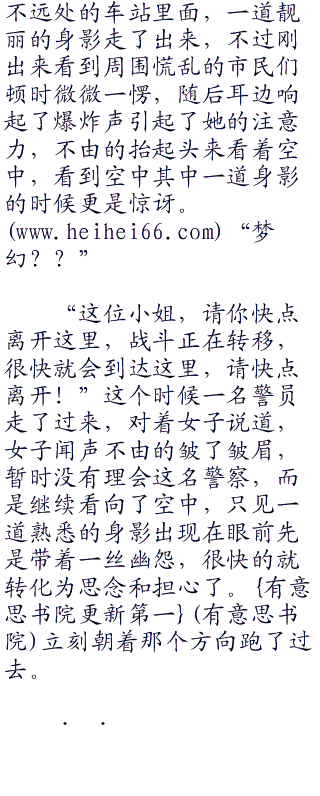 不远处的车站里面，一道靓
丽的身影走了出来，不过刚
出来看到周围慌乱的市民们
顿时微微一愣，随后耳边响
起了爆炸声引起了她的注意
力，不由的抬起头来看着空
中，看到空中其中一道身影
的时候更是惊讶。
(www.heihei66.com)“梦
幻？？”
“这位小姐，请你快点
离开这里，战斗正在转移，
很快就会到达这里，请快点
离开！”这个时候一名警员
走了过来，对着女子说道，
女子闻声不由的皱了皱眉，
暂时没有理会这名警察，而
是继续看向了空中，只见一
道熟悉的身影出现在眼前先
是带着一丝幽怨，很快的就
转化为思念和担心了。{有意
思书院更新第一}(有意思书
院)立刻朝着那个方向跑了过
去。
． ．